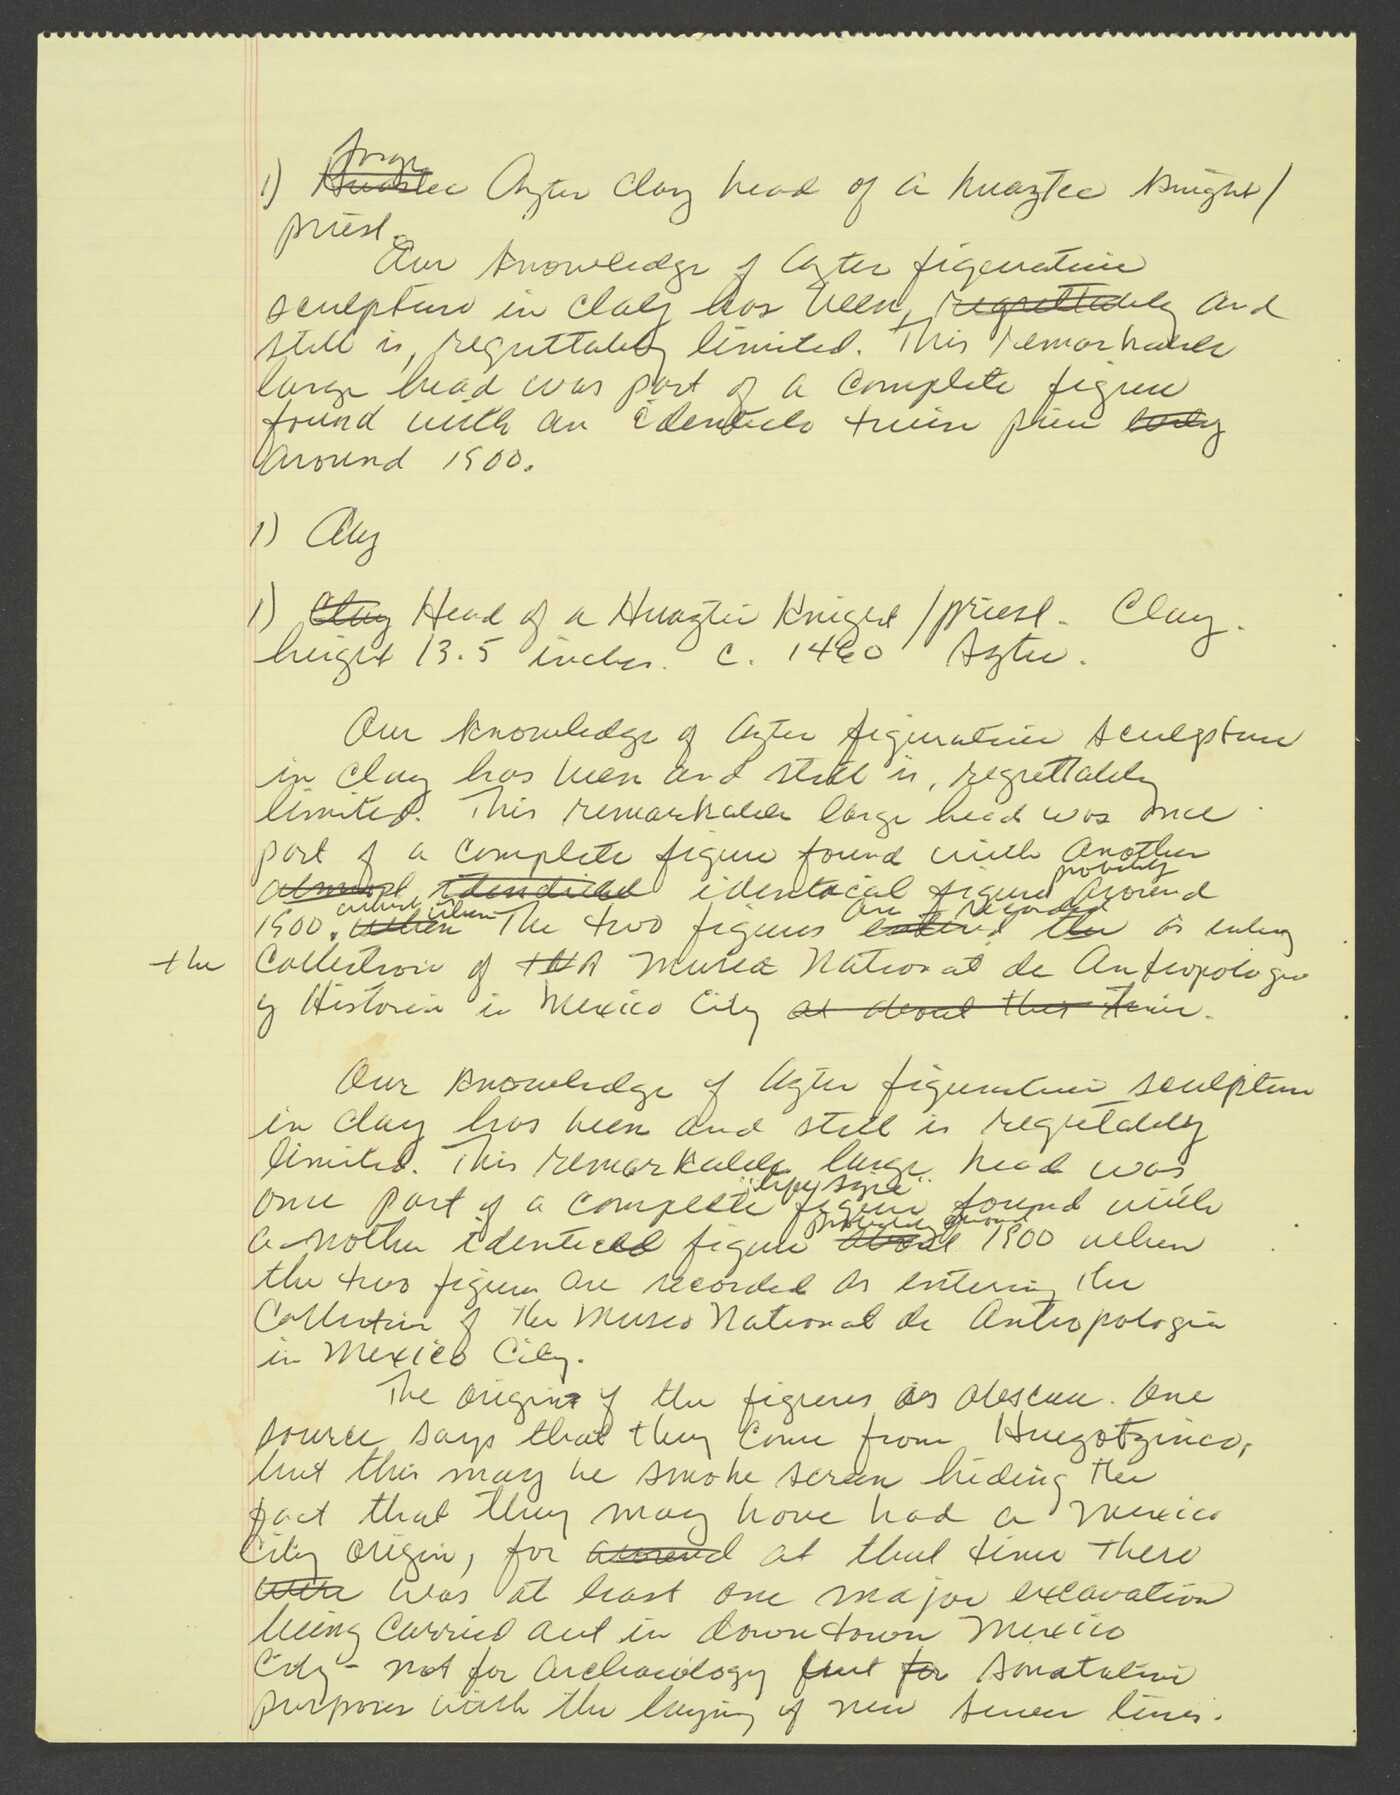 large
1) Huastec Aztec Clay head of a huaztec Knight/
priest.
Our knowledge of Aztec figurative
sculpture in clay has been, regrettably and
still is, regrettably limited. This remarkable
large head was part of a complete figure
found with an identicle twin
around 1900.
1) Clay
1) Clay Head of a Huaztec Knight/priest. Clay.
height 13.5 inches. C. 1460 Aztec.
Our knowledge of Aztec figurative sculpture
in clay has been and still is, regrettably
limited. This remarkable large head was once
part of a complete figure found with another
probably
almost identical figure around
are recorded
1900. when The two figures entered the as entering
the Collection of the Museo National de Antropologia
y Historia in Mexico City at about this time.
Our knowledge of Aztec figurative sculpture
in clay has been and still is regrettably
limited. This remarkable large head was
"life size"
once part of a complete figure found with
probably around
another identical figure about 1900 when
the two figures are recorded as entering the
Collection of the Museo National de Antropologia
in Mexico City.
The origin of the figures is obscure. One
source says that they come from Huegotzinco,
but this may be smoke screen hiding the
fact that they may have had a Mexico
City origin, for around at that time there
were was at least one major excavation
being carried out in downtown Mexico
City - not for archaeology but for sanatative
purposes with the laying of new sewer lines.